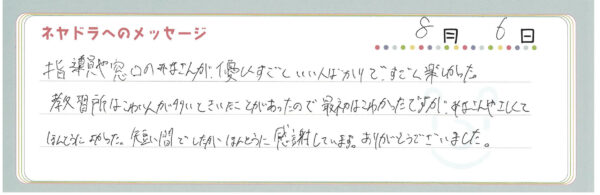 ネヤドラへのメッセージ
8月 6日
指導員や窓口のみなさんが、優しくすごくいい人ばかりで、すごく楽しかった。
教習所はこわい人が多いときいたことがあったので最初はこわかったですが、みなさんやさしくて
ほんとうによかった。短い間でしたが、ほんとうに感謝しています。ありがとうございました。